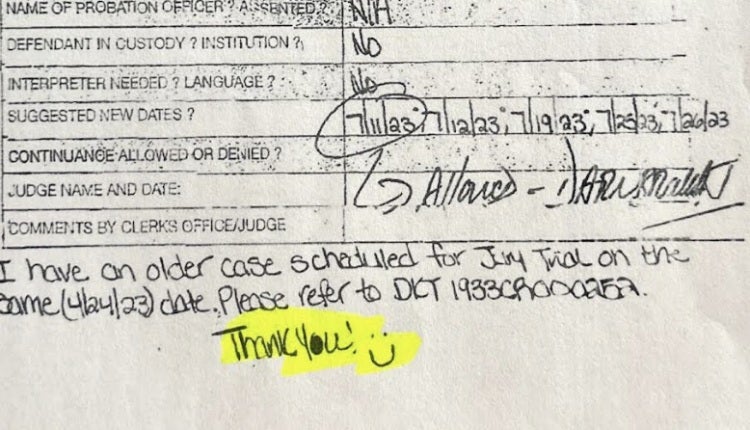 NAME OF PROBATION OFFICER? ASSENTED? N/A
DEFENDANT IN CUSTODY? INSTITUTION? No
INTERPRETER NEEDED? LANGUAGE? No
SUGGESTED NEW DATES? 7/11/23; 7/12/23; 7/19/23; 7/25/23; 7/26/23
CONTINUANCE ALLOWED OR DENIED?
JUDGE NAME AND DATE: Allowed -
COMMENTS BY CLERKS OFFICE/JUDGE
I have an older case scheduled for Jury Trial on the
same (4/24/23) date. Please refer to DKT 1933CR000252.
Thank you! :)